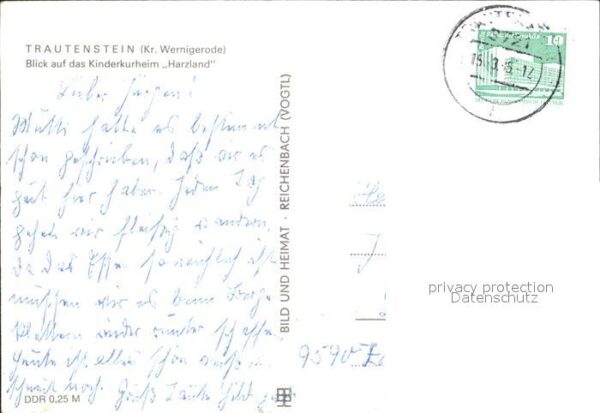 TRAUTENSTEIN (Kr. Wernigerode)
Blick auf das Kinderkurheim „Harzland"
Lieber Jürgen!
Mutti hatte es bestimmt
schon geschrieben, daß wir es
gut hier haben. Jeden Tag
gehen wir fleißig wandern.
da das Essen so reichlich ist
müssen wir es beim Berge
klettern wieder runter schaffen.
Heute ist alles schön
schneit noch. Gruß Tante Hild
DDR 0,25 M
BILD UND HEIMAT · REICHENBACH (VOGTL)
10
He
J
9590 Z
privacy protection
Datenschutz